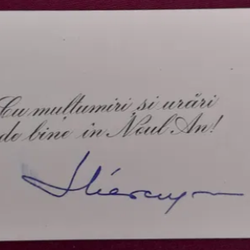 Cu mulțumiri și urări
de bine in Noul An!